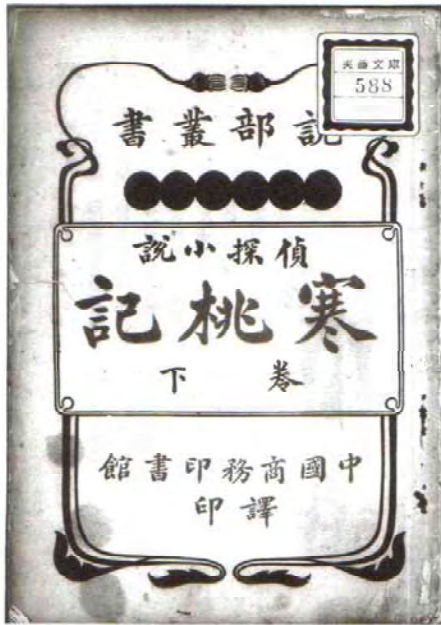 文庫
588
說部叢書
偵探小說
寒桃記
卷下
中國商務印書館
譯印